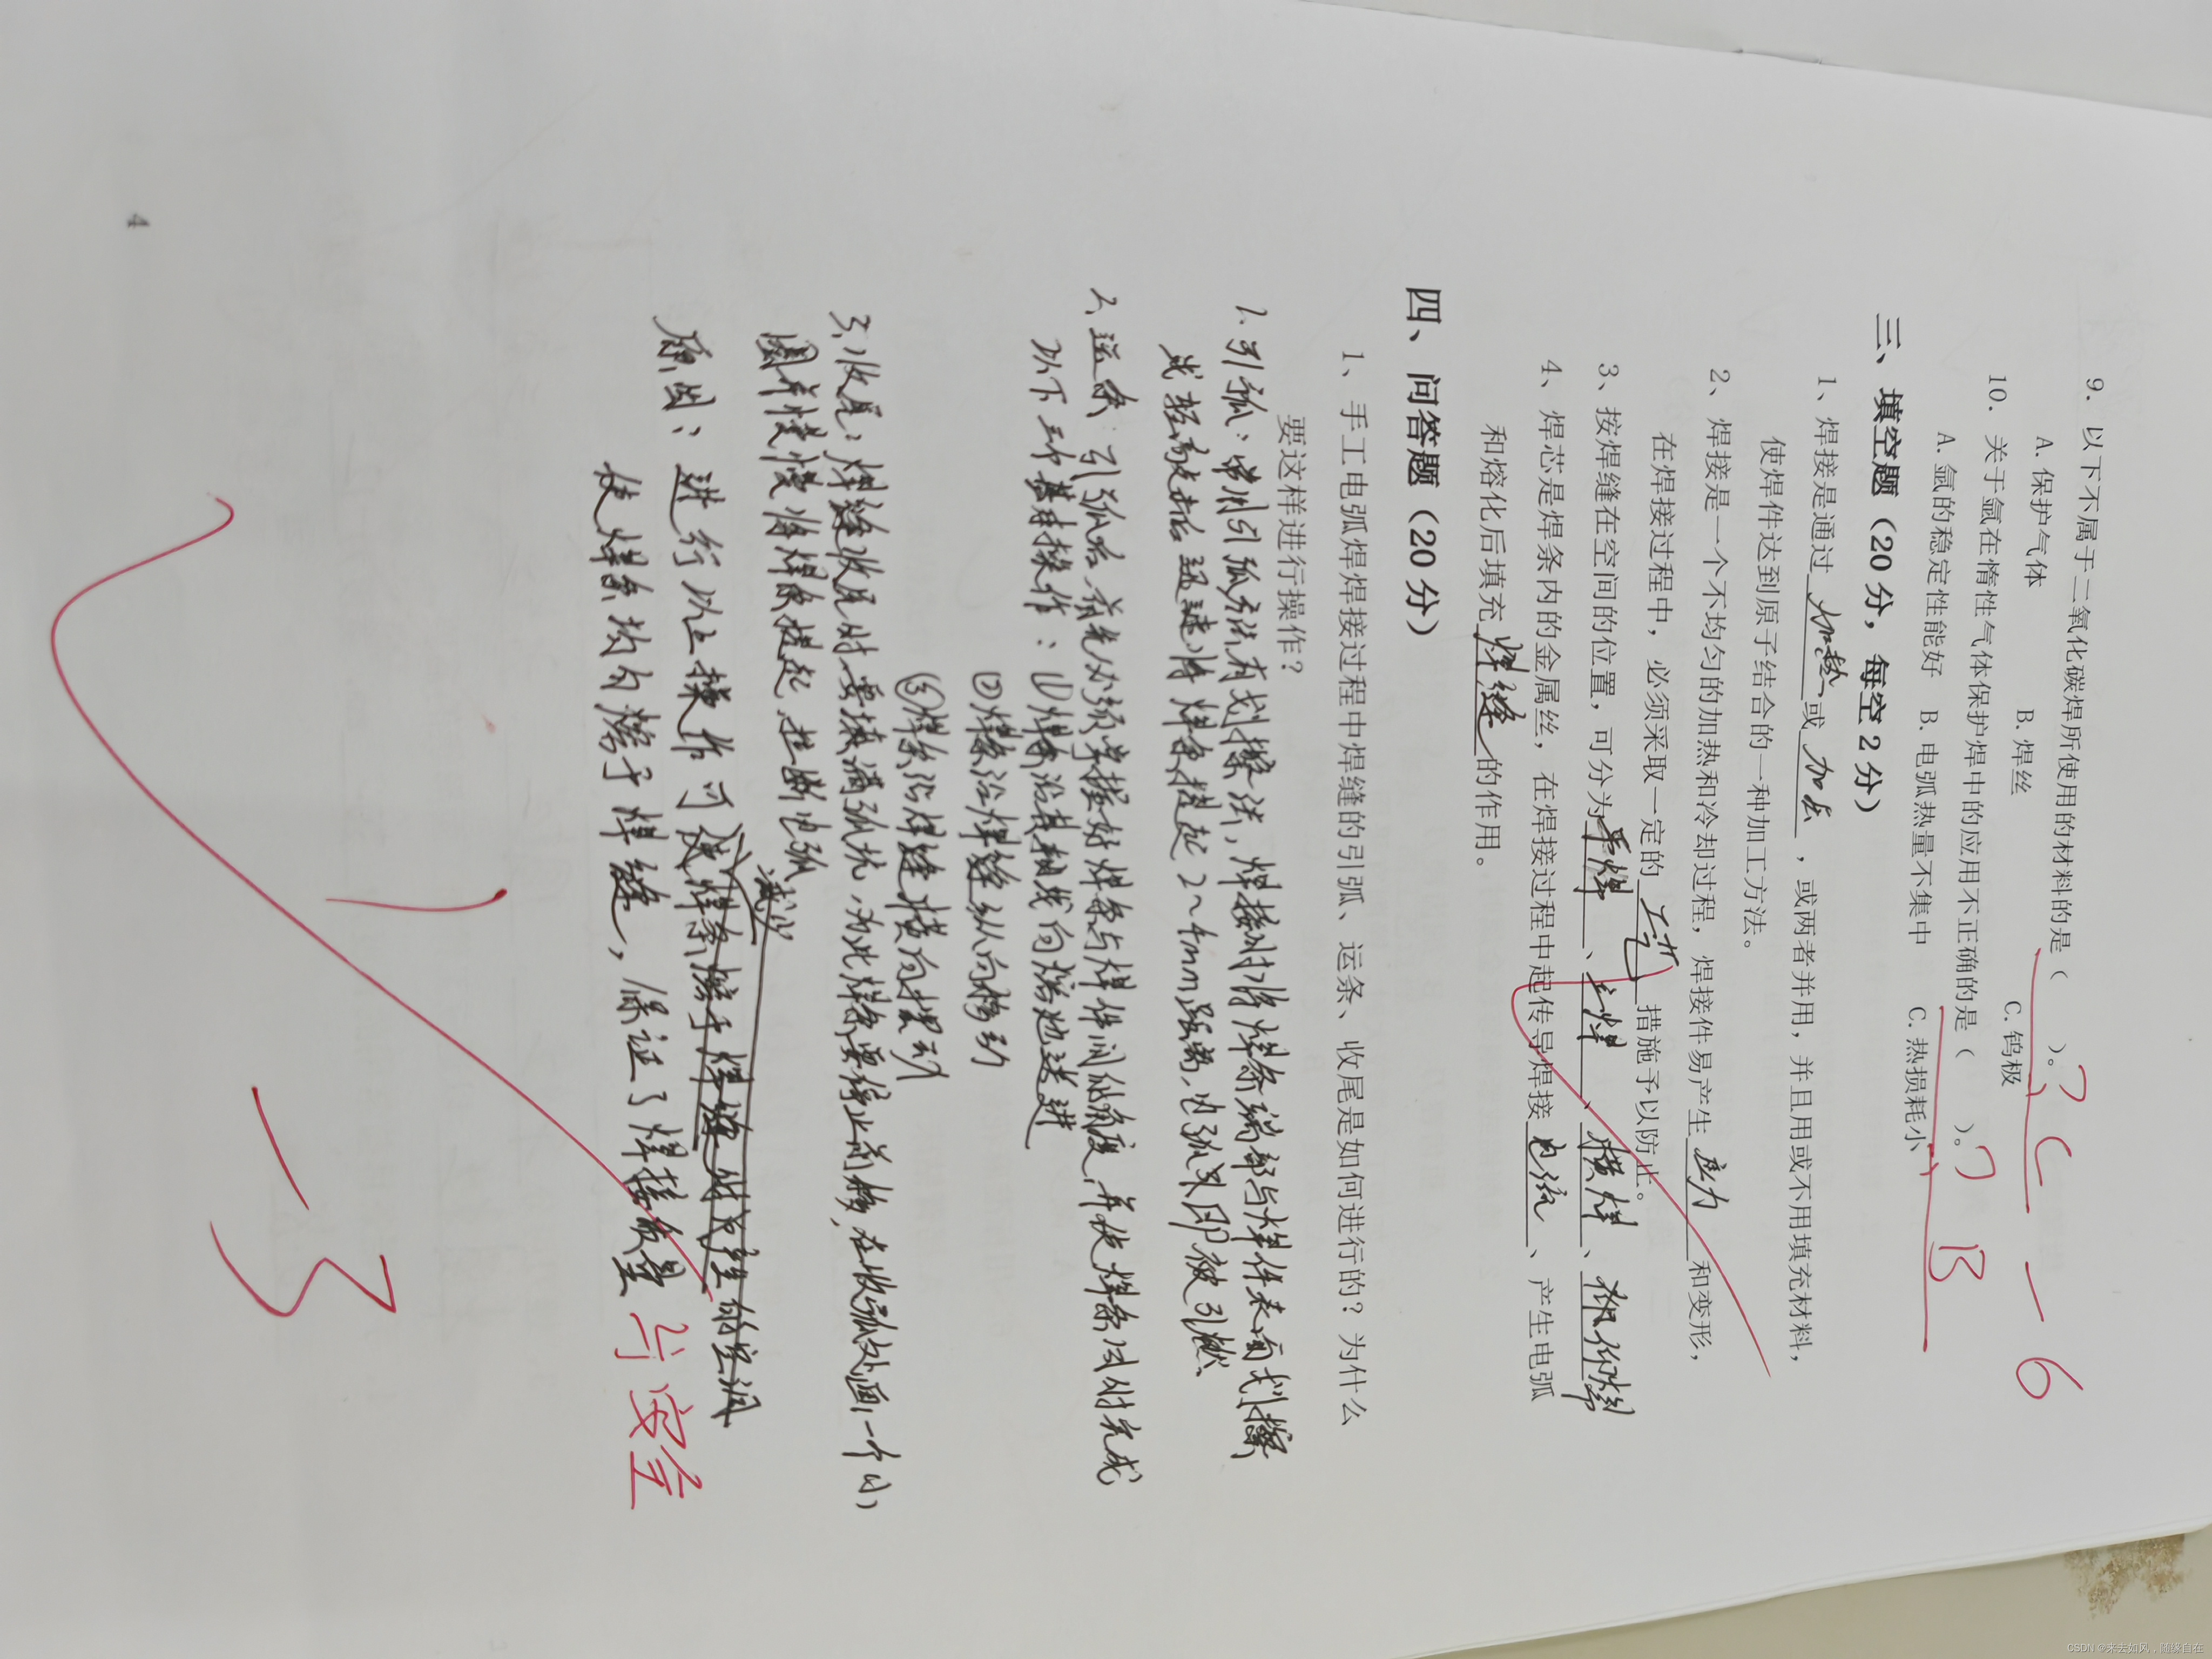 9. 以下不属于二氧化碳焊所使用的材料的是（ ）。? C -6
A. 保护气体 B. 焊丝 C. 钨极
10. 关于氩在惰性气体保护焊中的应用不正确的是（ ）。? B
A. 氩的稳定性能好 B. 电弧热量不集中 C. 热损耗小
三、填空题（20分，每空2分）
1、焊接是通过 加热 或 加压 ，或两者并用，并且用或不用填充材料，
使焊件达到原子结合的一种加工方法。
2、焊接是一个不均匀的加热和冷却过程，焊接件易产生 应力 和变形，
在焊接过程中，必须采取一定的 工艺 措施予以防止。
3、按焊缝在空间的位置，可分为 平焊 、 立焊 、 横焊 、 仰焊
4、焊芯是焊条内的金属丝，在焊接过程中起传导焊接 电流 、产生电弧
和熔化后填充 焊缝 的作用。
四、问答题（20分）
1、手工电弧焊焊接过程中焊缝的引弧、运条、收尾是如何进行的？为什么
要这样进行操作？
1. 引弧：常用引弧方法有划擦法，焊接时将焊条端部与焊件表面划擦
或轻敲击后迅速将焊条提起2~4mm距离，电弧即被引燃、
2、运条：引弧后、首先必须掌握好焊条与焊件间的角度，并使焊条同时完成
以下三种基本操作：①焊条沿其轴线向熔池送进
②焊条沿焊缝纵向移动
③焊条沿焊缝横向摆动
3、收尾：焊缝收尾时要填满弧坑，为此焊条要停止前移，在收弧处画一个小
圈并慢慢将焊条提起，拉断电弧
减少
原因：进行以上操作可使焊条熔于焊缝时产生的空洞
使焊条均匀熔于焊缝，保证了焊接质量 与安全
-3
4
CSDN @来去如风，随缘自在